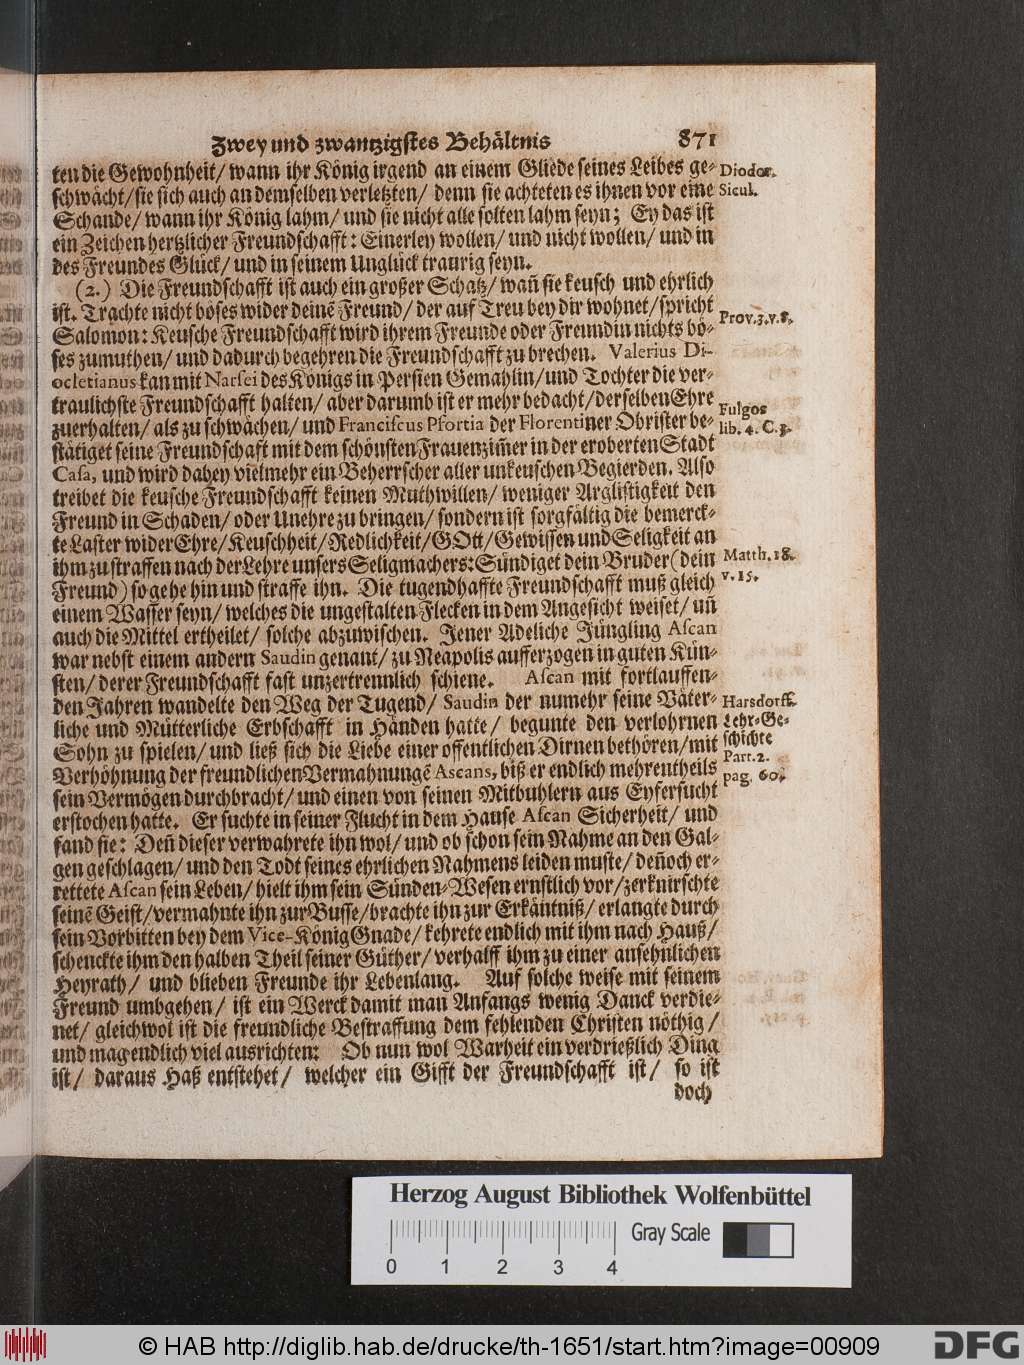 Zwey und zwantzigstes Behältnis 871
ten die Gewohnheit/ wann ihr König irgend an einem Gliede seines Leibes ge-
schwächt/ sie sich auch an demselben verletzten/ denn sie achteten es ihnen vor eine
Schande/ wann ihr König lahm/ und sie nicht alle solten lahm seyn; Ey das ist
ein Zeichen hertzlicher Freundschafft: Einerley wollen/ und nicht wollen/ und in
des Freundes Glück/ und in seinem Unglück traurig seyn.
Diodor.
Sicul.
(2.) Die Freundschafft ist auch ein großer Schatz/ wañ sie keusch und ehrlich
ist. Trachte nicht böses wider deinē Freund/ der auf Treu bey dir wohnet/ spricht
Salomon: Keusche Freundschafft wird ihrem Freunde oder Freundin nichts bö-
ses zumuthen/ und dadurch begehren die Freundschafft zu brechen. Valerius Di-
ocletianus kan mit Narsei des Königs in Persien Gemahlin/ und Tochter die ver-
traulichste Freundschafft halten/ aber darumb ist er mehr bedacht/ derselben Ehre
zuerhalten/ als zu schwächen/ und Franciscus Psortia der Florentiner Obrister be-
stätiget seine Freundschaft mit dem schönsten Frauenzim̃er in der eroberten Stadt
Casa, und wird dahey vielmehr ein Beherrscher aller unkeuschen Begierden. Also
treibet die keusche Freundschafft keinen Muthwillen/ weniger Arglistigkeit den
Freund in Schaden/ oder Unehre zu bringen/ sondern ist sorgfältig die bemerck-
te Laster wider Ehre/ Keuschheit/ Redlichkeit/ GOtt/ Gewissen und Seligkeit an
ihm zu straffen nach der Lehre unsers Seligmachers: Sündiget dein Bruder (dein
Freund) so gehe hin und straffe ihn. Die tugendhaffte Freundschafft muß gleich
einem Wasser seyn/ welches die ungestalten Flecken in dem Angesicht weiset/ uñ
auch die Mittel ertheilet/ solche abzuwischen. Jener Adeliche Jüngling Ascan
war nebst einem andern Saudin genant/ zu Neapolis aufferzogen in guten Kün-
sten/ derer Freundschafft fast unzertrennlich schiene. Ascan mit fortlauffen-
den Jahren wandelte den Weg der Tugend/ Saudin der numehr seine Väter-
liche und Mütterliche Erbschafft in Händen hatte/ begunte den verlohrnen
Sohn zu spielen/ und ließ sich die Liebe einer offentlichen Dirnen bethören/ mit
Verhöhnung der freundlichen Vermahnungē Ascans, biß er endlich mehrentheils
sein Vermögen durchbracht/ und einen von seinen Mitbuhlern aus Eyfersucht
erstochen hatte. Er suchte in seiner Flucht in dem Hause Ascan Sicherheit/ und
fand sie: Deñ dieser verwahrete ihn wol/ und ob schon sein Nahme an den Gal-
gen geschlagen/ und den Todt seines ehrlichen Nahmens leiden muste/ deñoch er-
rettete Ascan sein Leben/ hielt ihm sein Sünden-Wesen ernstlich vor/ zerknirschte
seinē Geist/ vermahnte ihn zur Busse/ brachte ihn zur Erkäntniß/ erlangte durch
sein Vorbitten bey dem Vice-König Gnade/ kehrete endlich mit ihm nach Hauß/
schenckte ihm den halben Theil seiner Güther/ verhalff ihm zu einer ansehnlichen
Heyrath/ und blieben Freunde ihr Lebenlang. Auf solche weise mit seinem
Freund umbgehen/ ist ein Werck damit man Anfangs wenig Danck verdie-
net/ gleichwol ist die freundliche Bestraffung dem fehlenden Christen nöthig/
und mag endlich viel ausrichten: Ob nun wol Warheit ein verdrießlich Ding
ist/ daraus Haß entstehet/ welcher ein Gifft der Freundschafft ist/ so ist
doch
Prov.3.v.8.
Fulgos
lib. 4. C.3.
Matth.18.
v.15.
Harsdorff.
Lehr-Ge-
schichte
Part.2.
pag. 60.
Herzog August Bibliothek Wolfenbüttel
Gray Scale
0 1 2 3 4
© HAB http://diglib.hab.de/drucke/th-1651/start.htm?image=00909
DFG